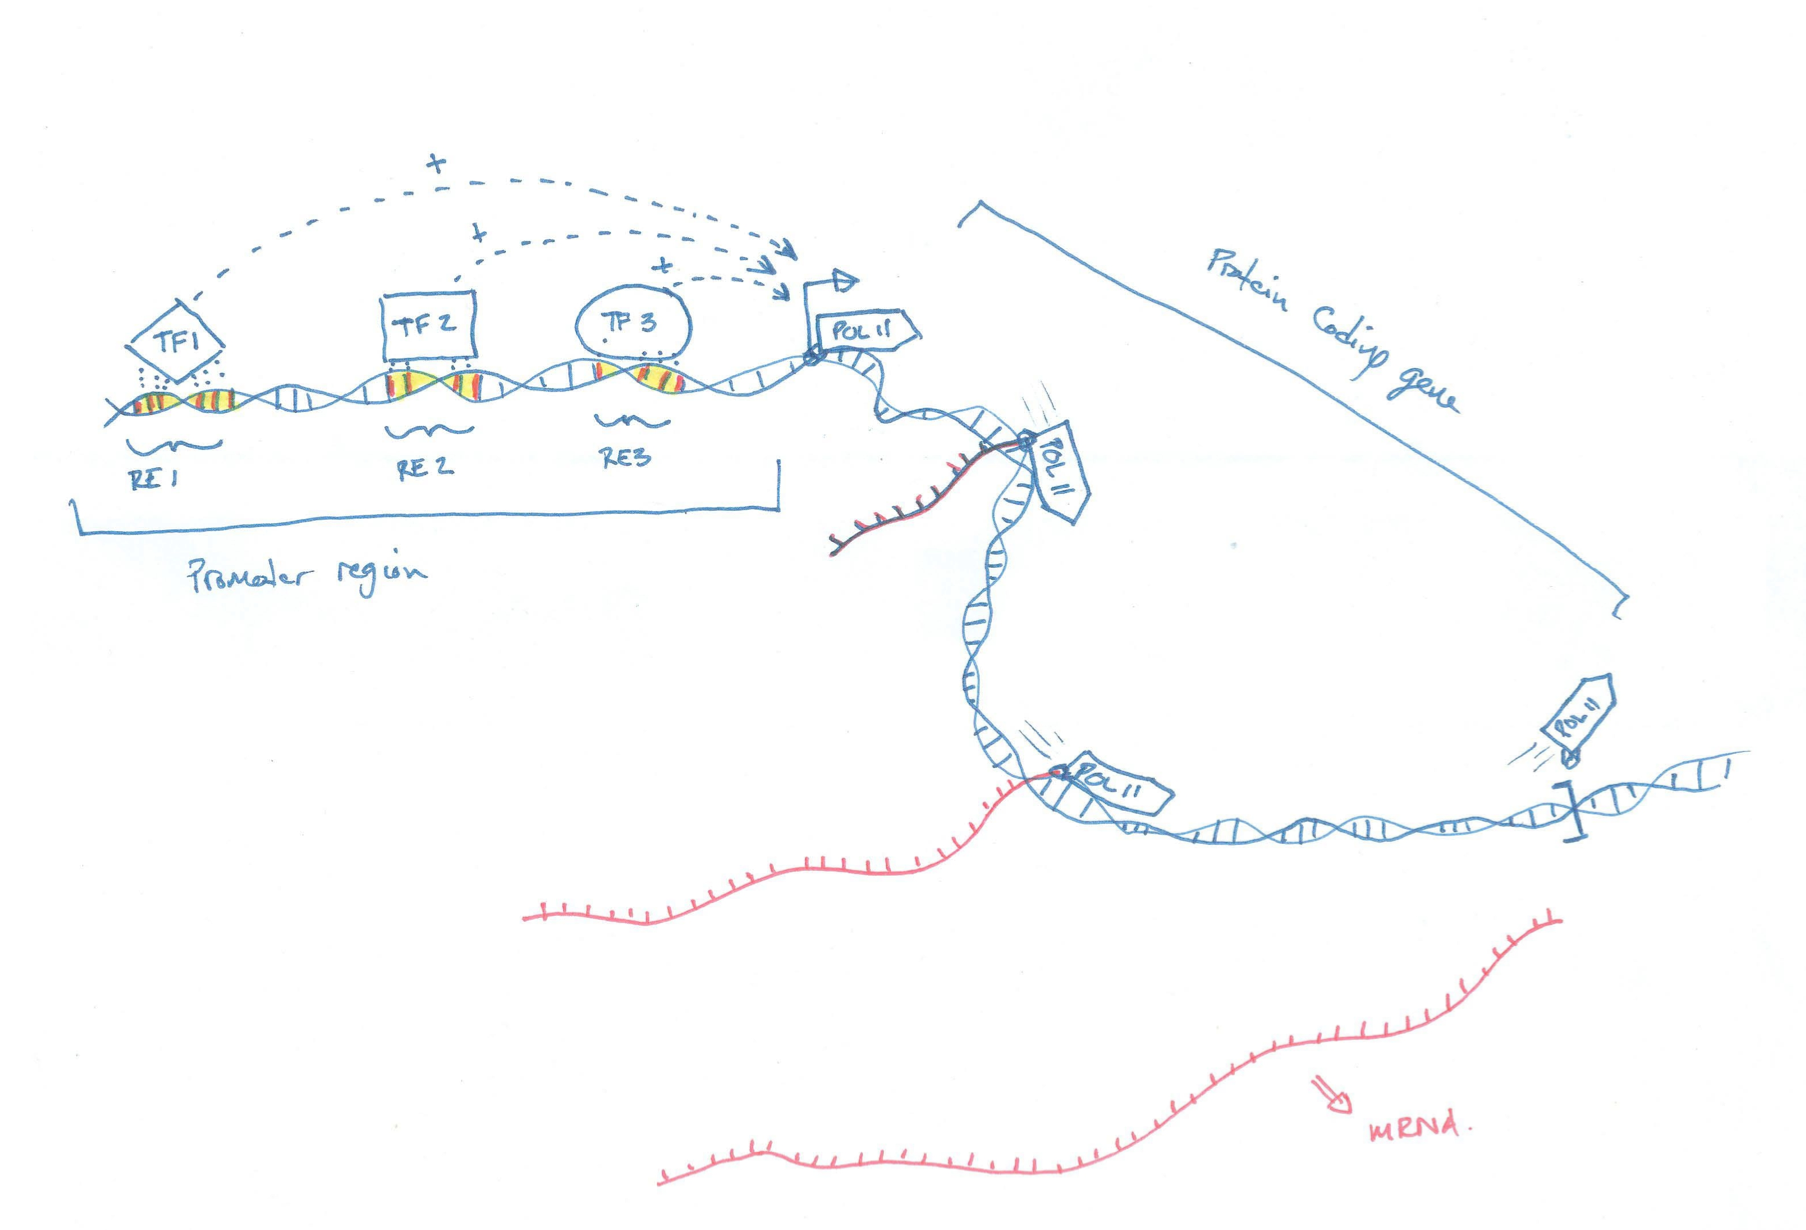 +
+
+
TF1
TF2
TF3
POL II
RE1
RE2
RE3
Promoter region
Protein Coding gene
POL II
POL II
POL II
mRNA.